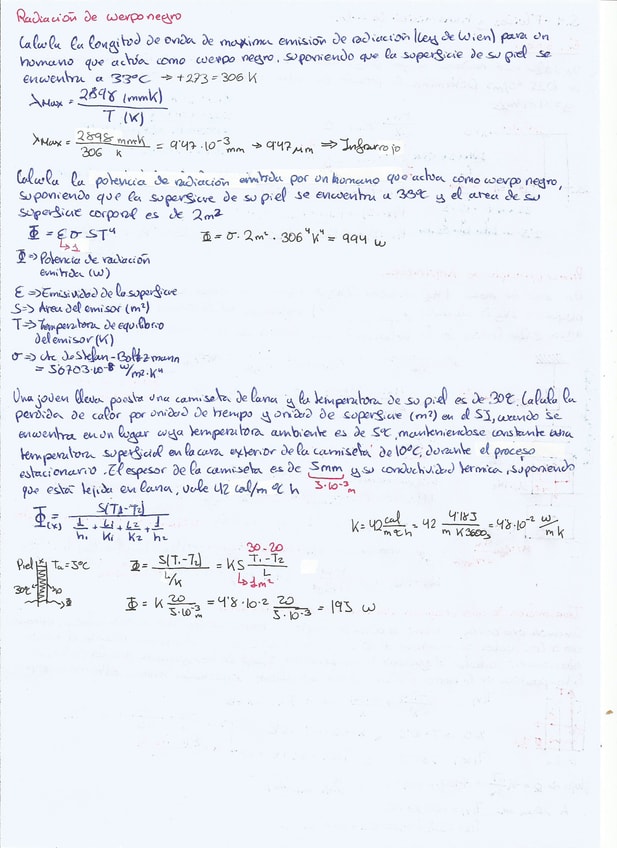 Radiación de cuerpo negro
Calcula la longitud de onda de maxima emisión de radiación (Ley de Wien) para un
humano que actúa como cuerpo negro, suponiendo que la superficie de su piel se
encuentra a 33ºC → +273 = 306 K
λmax = 2898 (mmK) / T (K)
λmax = 2898 mmK / 306 K = 9'47·10⁻³ mm → 9'47 μm ⇒ Infrarrojo
Calcula la potencia de radiación emitida por un humano que actua como cuerpo negro,
suponiendo que la superficie de su piel se encuentra a 33ºC y el area de su
superficie corporal es de 2m²
Φ = εσ ST⁴ Φ = σ · 2m² · 306⁴ K⁴ = 994 W
↳ 1
Φ ⇒ Potencia de radiación
emitida (W)
ε ⇒ Emisividad de la superficie
S ⇒ Area del emisor (m²)
T ⇒ Temperatura de equilibrio
del emisor (K)
σ ⇒ cte de Stefan-Boltzmann
= 5'6703·10⁻⁸ W/m²·K⁴
Una joven lleva puesta una camiseta de lana y la temperatura de su piel es de 30ºC. Calcula la
perdida de calor por unidad de tiempo y unidad de superficie (m²) en el SI, cuando se
encuentra en un lugar cuya temperatura ambiente es de 5ºC, manteniendose constante una
temperatura superficial en la cara exterior de la camiseta de 10ºC, durante el proceso
estacionario. El espesor de la camiseta es de 5mm y su conductividad termica, suponiendo
5·10⁻³ m
que está tejida en lana, vale 42 cal/m ºC h
Φ(x) = S(T1-T2) / 1/h1 + L1/K1 + L2/K2 + 1/h2
K = 42 cal/m ºC h = 42 4'183/m K 3600s = 4'8·10⁻² W/mK
Piel Ta = 5ºC
30ºC 10
Φ = S(T1-T2) / L/K = KS T1-T2 / L
30-20
↳ 1m²
Φ = K 20 / 5·10⁻³ m = 4'8·10⁻² 20 / 5·10⁻³ = 195 W